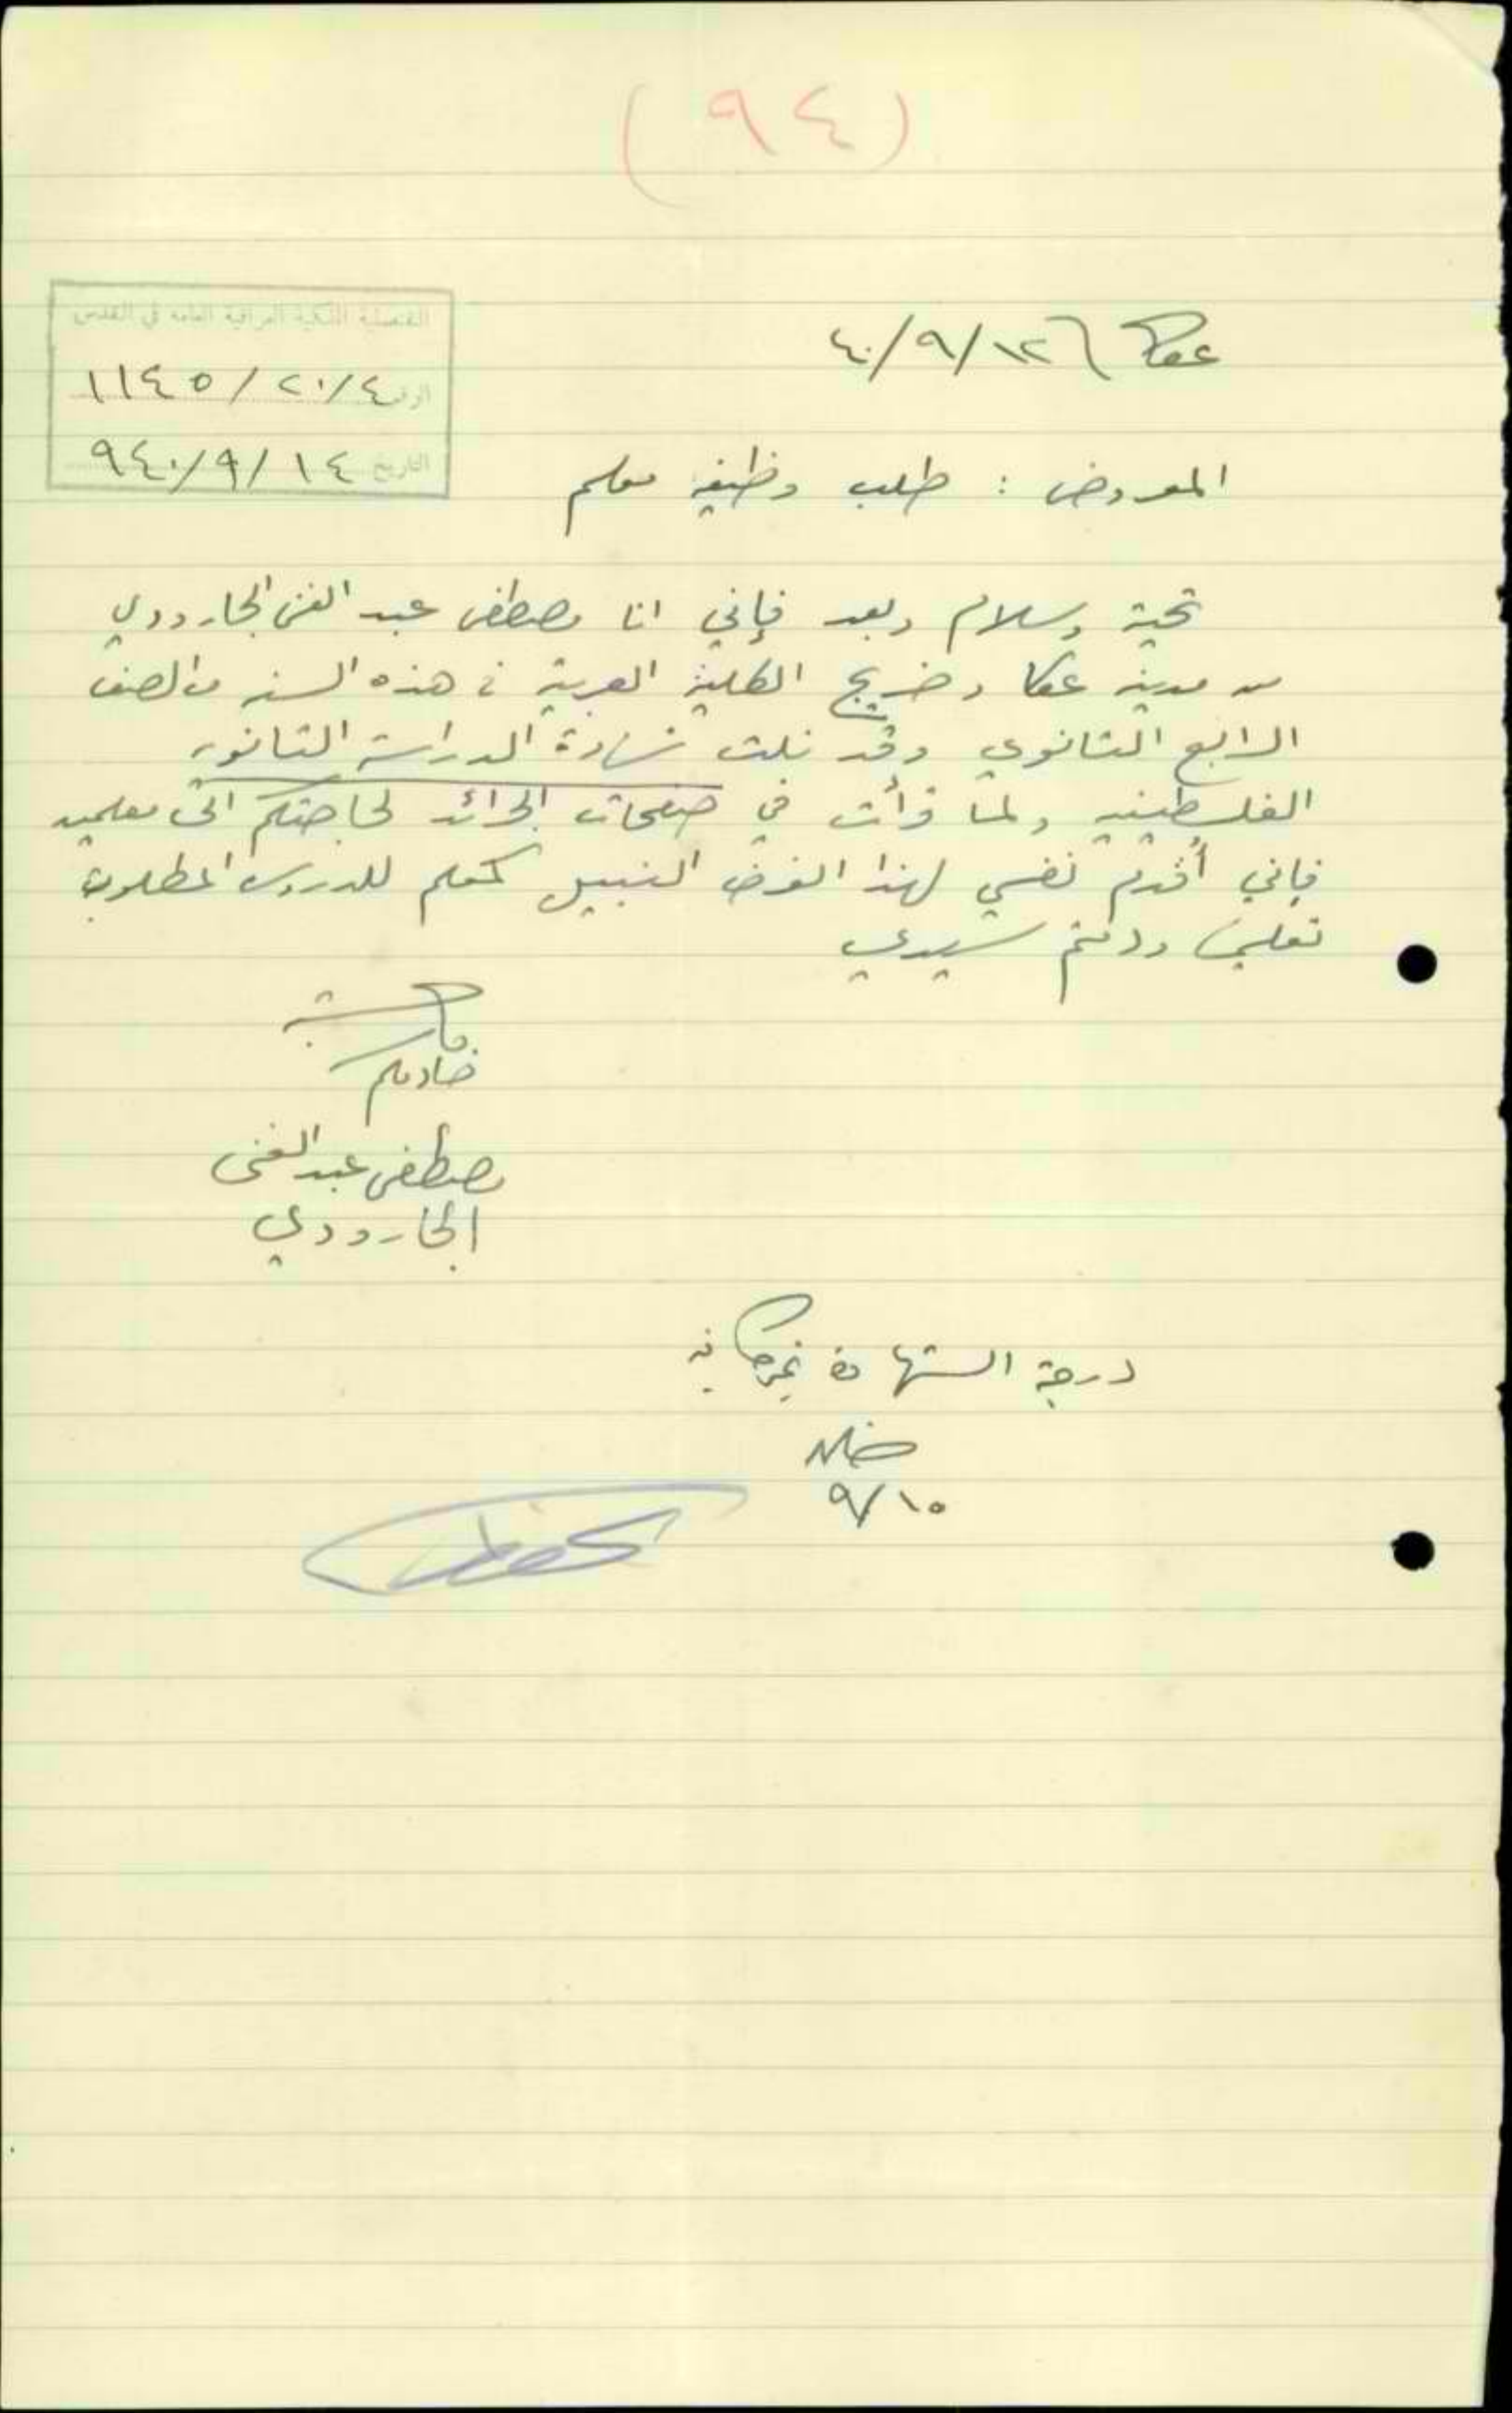 (٩٤)
القنصلية الملكية العراقية العامة في القدس
الرقم ١١٤٥/٢٠/٤
التاريخ ٩٤٠/٩/١٤
عكا ٤٠/٩/١٢
المعروض : طلب وظيفة معلم
تحية وسلام وبعد فإني انا مصطفى عبد الغني الجارودي
من مدينة عكا وخريج الكلية العربية في هذه السنة من الصف
الرابع الثانوي وقد نلت شهادة الدراسة الثانوية
الفلسطينية ولما قرأت في صفحات الجرائد لحاجتكم الى معلمين
فإني أقدم نفسي لهذا الغرض النبيل كمعلم للدروس المطلوب
تعليمها ودمتم سيدي
خادمكم
مصطفى عبد الغني
الجارودي
درجة الشهادة
٩/١٥